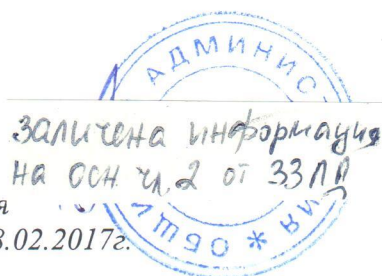 АДМИНИС
заличена информация
на осн чл. 2 от ЗЗЛД
я
.02.2017г.
ОБЩ
ИЯ *